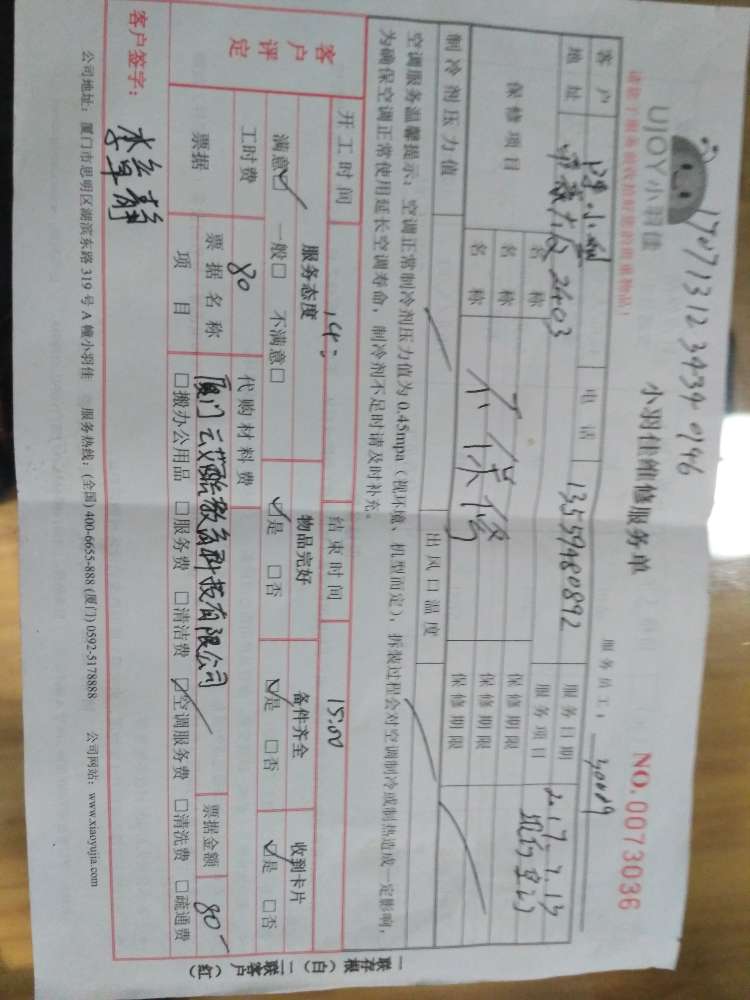 170713123434 0746
UJOY小羽佳
小羽佳维修服务单
NO.0073036
请您于服务前收拾好您的贵重物品!
服务员工:
客户 陈小姐 电话 13559480892 服务日期 2017-7.13
地址 大厦2403 服务项目
保修项目 名称 不保修 保修期限
名称 保修期限
名称 保修期限
制冷剂压力值 出风口温度
空调服务温馨提示:空调正常制冷剂压力值为0.45mpa(视环境、机型而定),拆装过程会对空调制冷或制热造成一定影响,
为确保空调正常使用延长空调寿命,制冷剂不足时请及时补充。
开工时间 14: 结束时间 15:00
客户评定 服务态度 物品完好 备件齐全 收到卡片
满意☑ 一般□ 不满意□ ☑是 □否 ☑是 □否 ☑是 □否
工时费 80 代购材料费
票据 票据名称 厦门云 科技有限公司 票据金额 80-
项目 □搬办公用品 □服务费 □清洁费 ☑空调服务费 □清洗费 □疏通费
客户签字: 静
公司地址:厦门市思明区湖滨东路319号A幢小羽佳 服务热线:(全国)400-6655-888 (厦门)0592-5178888 公司网站:www.xiaoyujia.com
一联存根(白)二联客户(红)